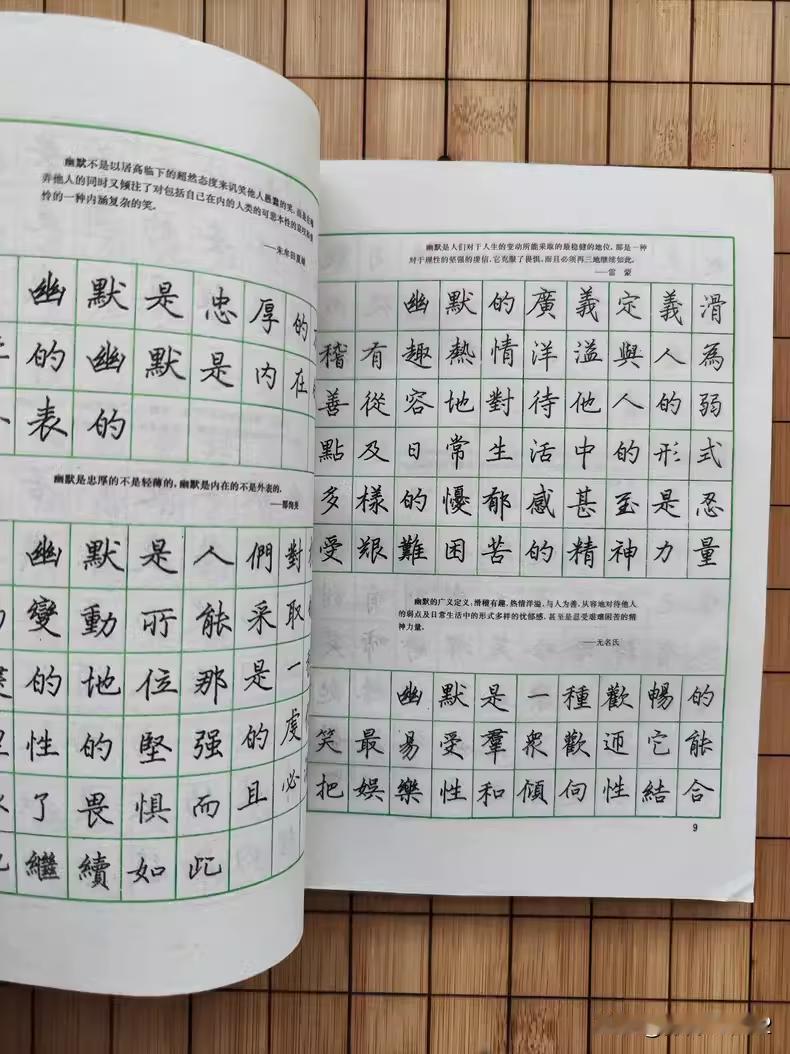 幽默不是以居高临下的超然态度来讥笑他人愚蠢的笑,而是
弄他人的同时又倾注了对包括自己在内的人类的可悲本性的
怜的一种内涵复杂的笑。
幽默是忠厚的
的幽默是内在
表的
幽默是忠厚的不是轻薄的,幽默是内在的不是外表的。
幽默是人們對
變動所能采取
的地位那是一
性的堅强的虔
了畏惧而且必
繼續如此
幽默是人们对于人生的变动所能采取的最稳健的地位,那是一种
对于理性的坚强的虔信,它克服了畏惧,而且必须再三地继续如此。
——雷 蒙
幽默的廣義定義滑
稽有趣熱情洋溢與人為
善從容地對待他人的弱
點及日常生活中的形式
多樣的憂郁感甚至是忍
受艱難困苦的精神力量
幽默的广义定义,滑稽有趣,热情洋溢,与人为善,从容地对待他人
的弱点及日常生活中的形式多样的忧郁感,甚至是忍受艰难困苦的精
神力量。
——无名氏
幽默是一種歡暢的
笑最易受羣衆歡迎它能
把娛樂性和傾向性結合
9